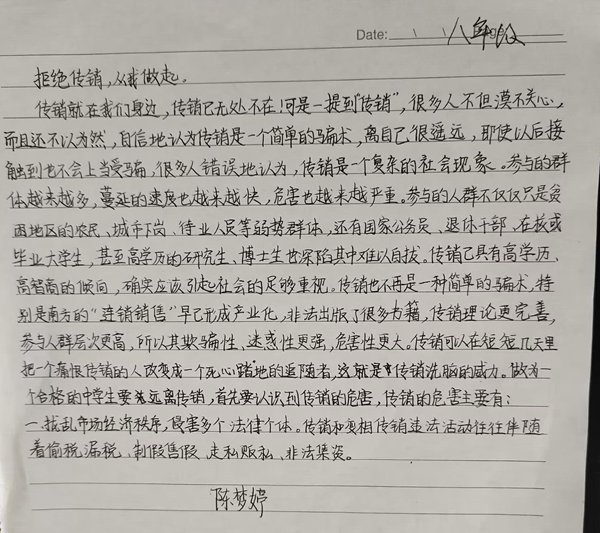 Date: 八年级
拒绝传销，从我做起。
传销就在我们身边，传销已无处不在!可是一提到“传销”，很多人不但漠不关心，
而且还不以为然，自信地认为传销是一个简单的骗术，离自己很遥远，即使以后接
触到也不会上当受骗，很多人错误地认为，传销是一个复杂的社会现象。参与的群
体越来越多，蔓延的速度也越来越快，危害也越来越严重。参与的人群不仅仅只是贫
困地区的农民、城市下岗、待业人员等弱势群体，还有国家公务员、退休干部、在校或
毕业大学生，甚至高学历的研究生、博士生也深陷其中难以自拔。传销已具有高学历、
高智商的倾向，确实应该引起社会的足够重视。传销也不再是一种简单的骗术，特
别是南方的“连锁销售”早已形成产业化，非法出版了很多书籍，传销理论更完善，
参与人群层次更高，所以其欺骗性、迷惑性更强，危害性更大。传销可以在短短几天里
把一个痛恨传销的人改变成一个死心踏地的追随者，这就是传销洗脑的威力。做为一
个合格的中学生要远离传销，首先要认识到传销的危害，传销的危害主要有：
一扰乱市场经济秩序，侵害多个法律个体。传销和变相传销违法活动往往伴随
着偷税漏税、制假售假、走私贩私、非法集资。
陈梦婷